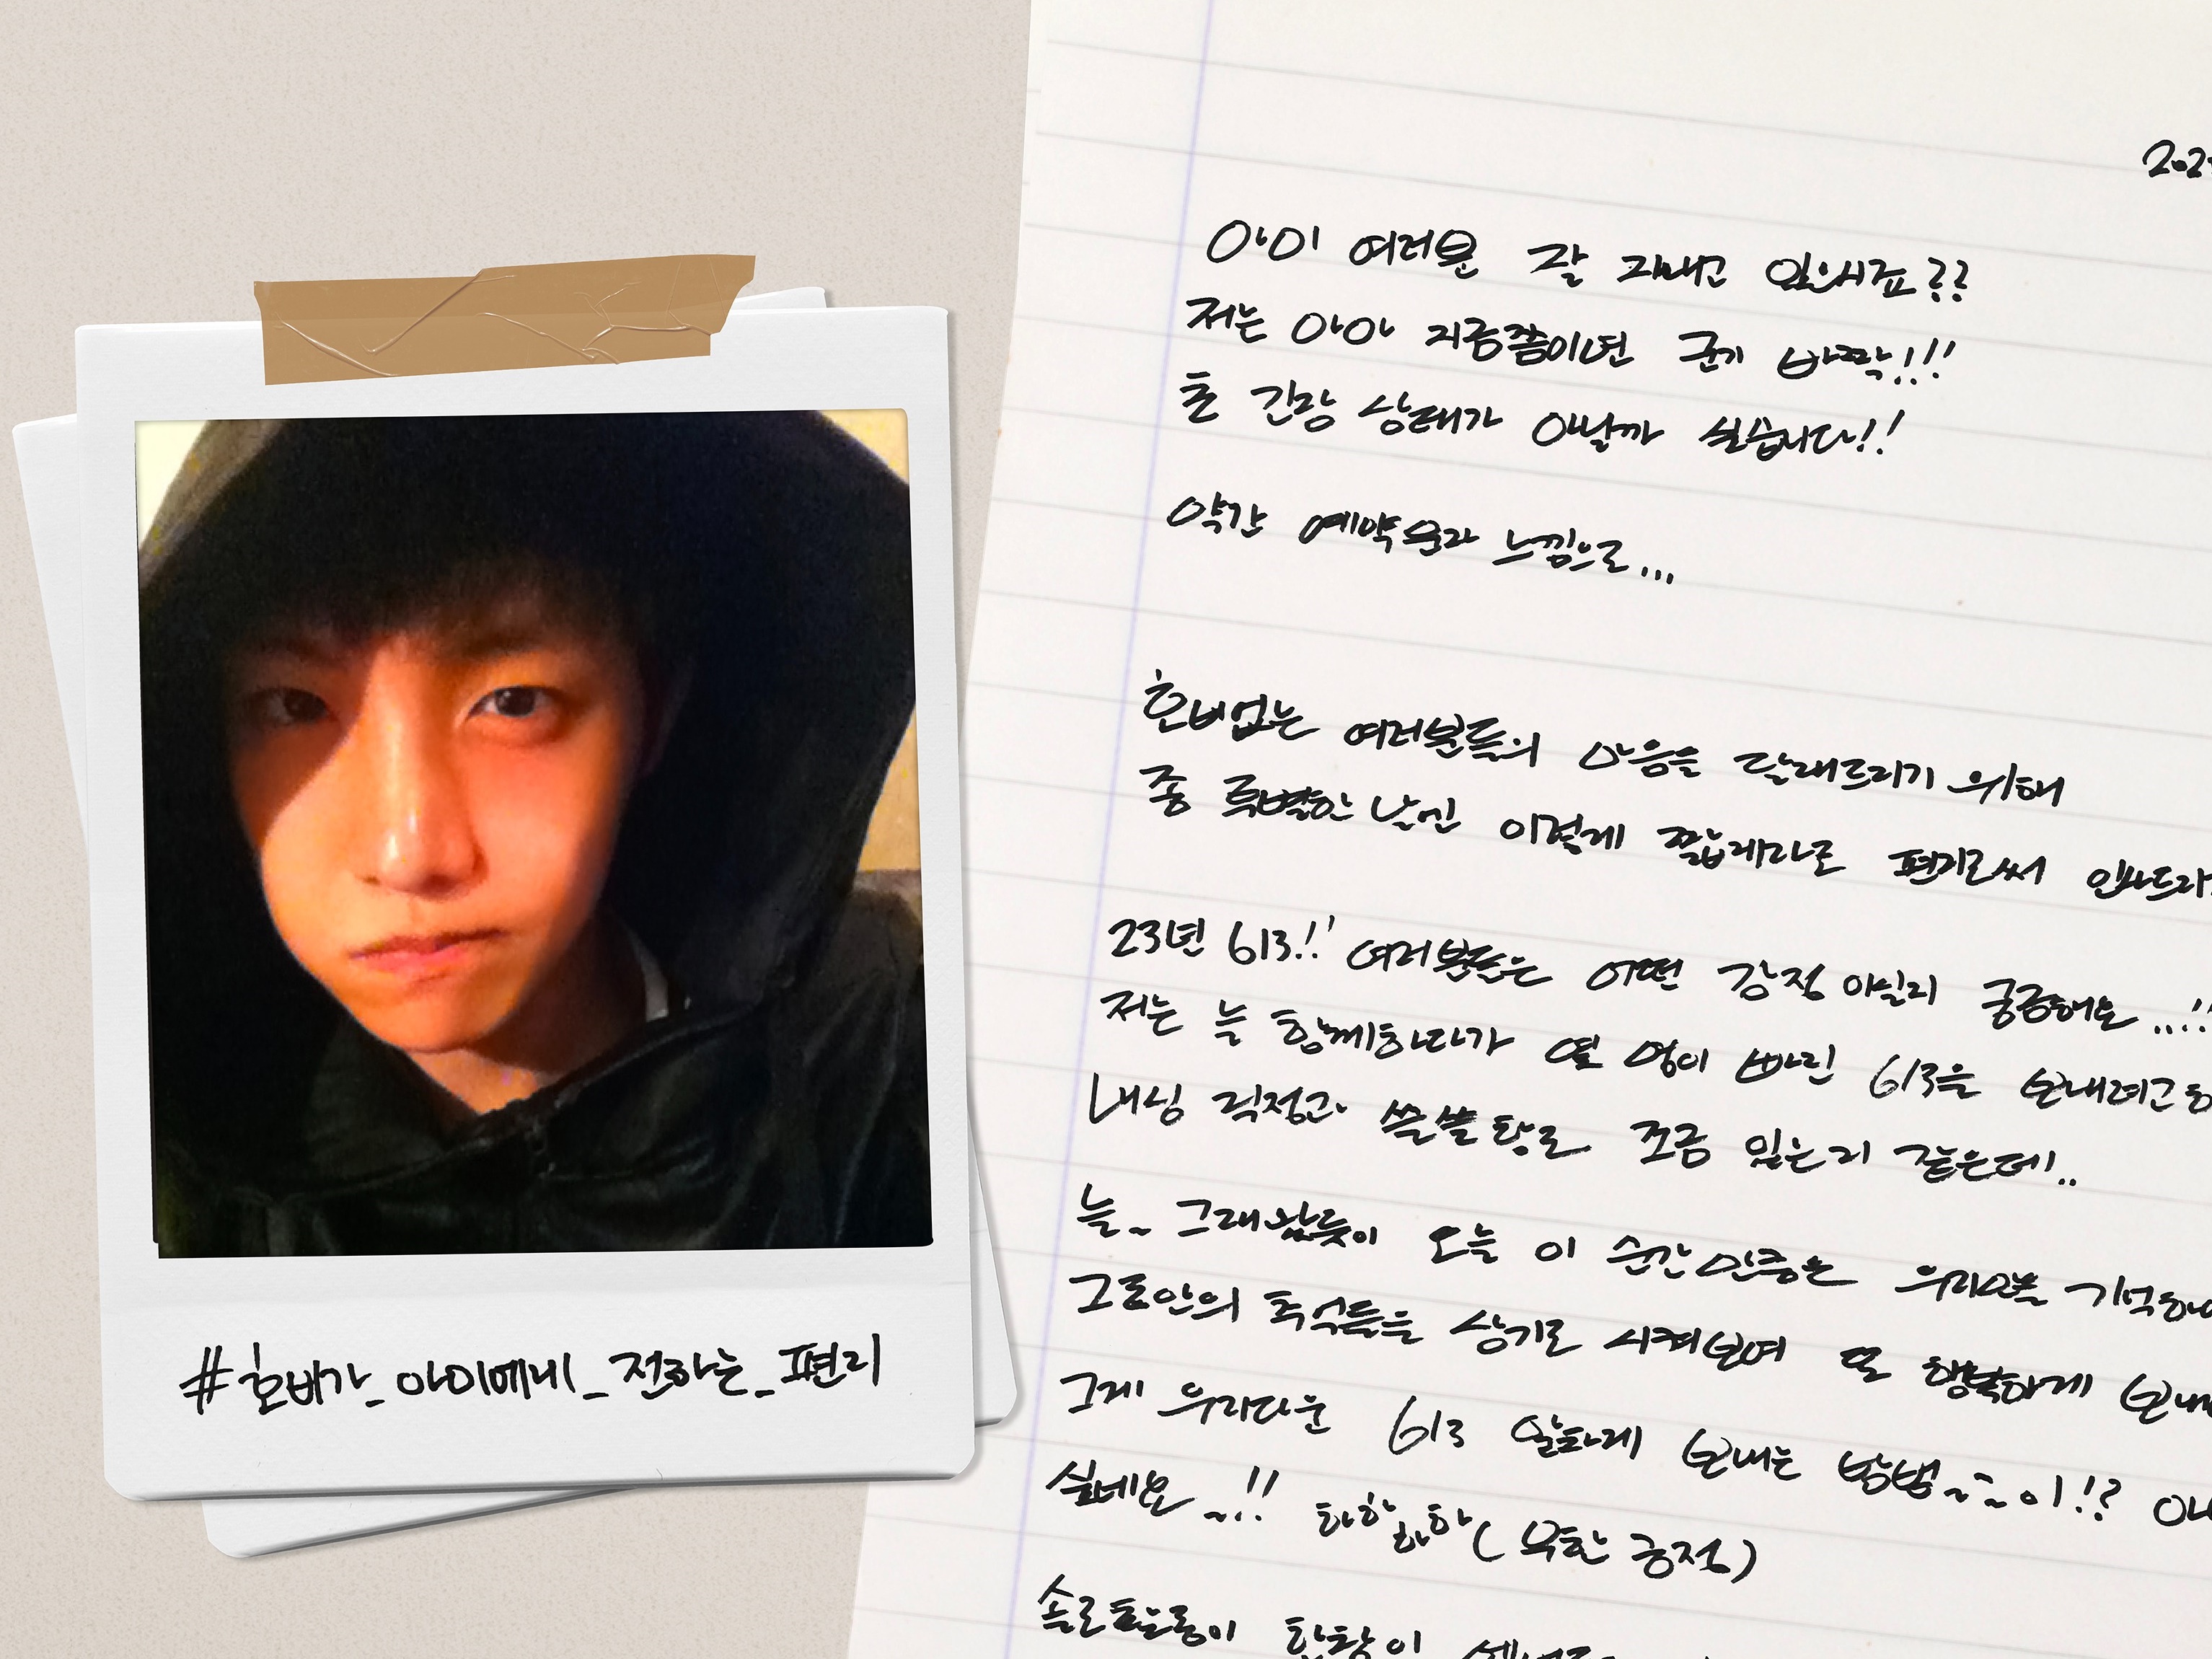 202
아미 여러분 잘 지내고 있으시죠??
저는 아마 지금쯤이면 군기 바짝!!!
초 긴장 상태가 아닐까 싶습니다!!
약간 예약문자 느낌으로...
호비없는 여러분들의 마음을 달래드리기 위해
좀 특별한 날엔 이렇게 짧게라도 편지로써 인사드리
23년 613!! 여러분들은 어떤 감정이실지 궁금해요...!!
저는 늘 함께하다가 몇 명이 빠진 613을 보내려고 하
내심 걱정과 쓸쓸함도 조금 있는거 같은데..
늘~ 그래왔듯이 오늘 이 순간만큼은 우리만을 기억하며
그동안의 추억들을 상기도 시켜보며 또 행복하게 보내
그게 우리다운 613 알차게 보내는 방법~~이!? 아니
싶네요~!! 하하하하 (무한 긍정)
솔로활동이 한창인
#호비가_아미에게_전하는_편지